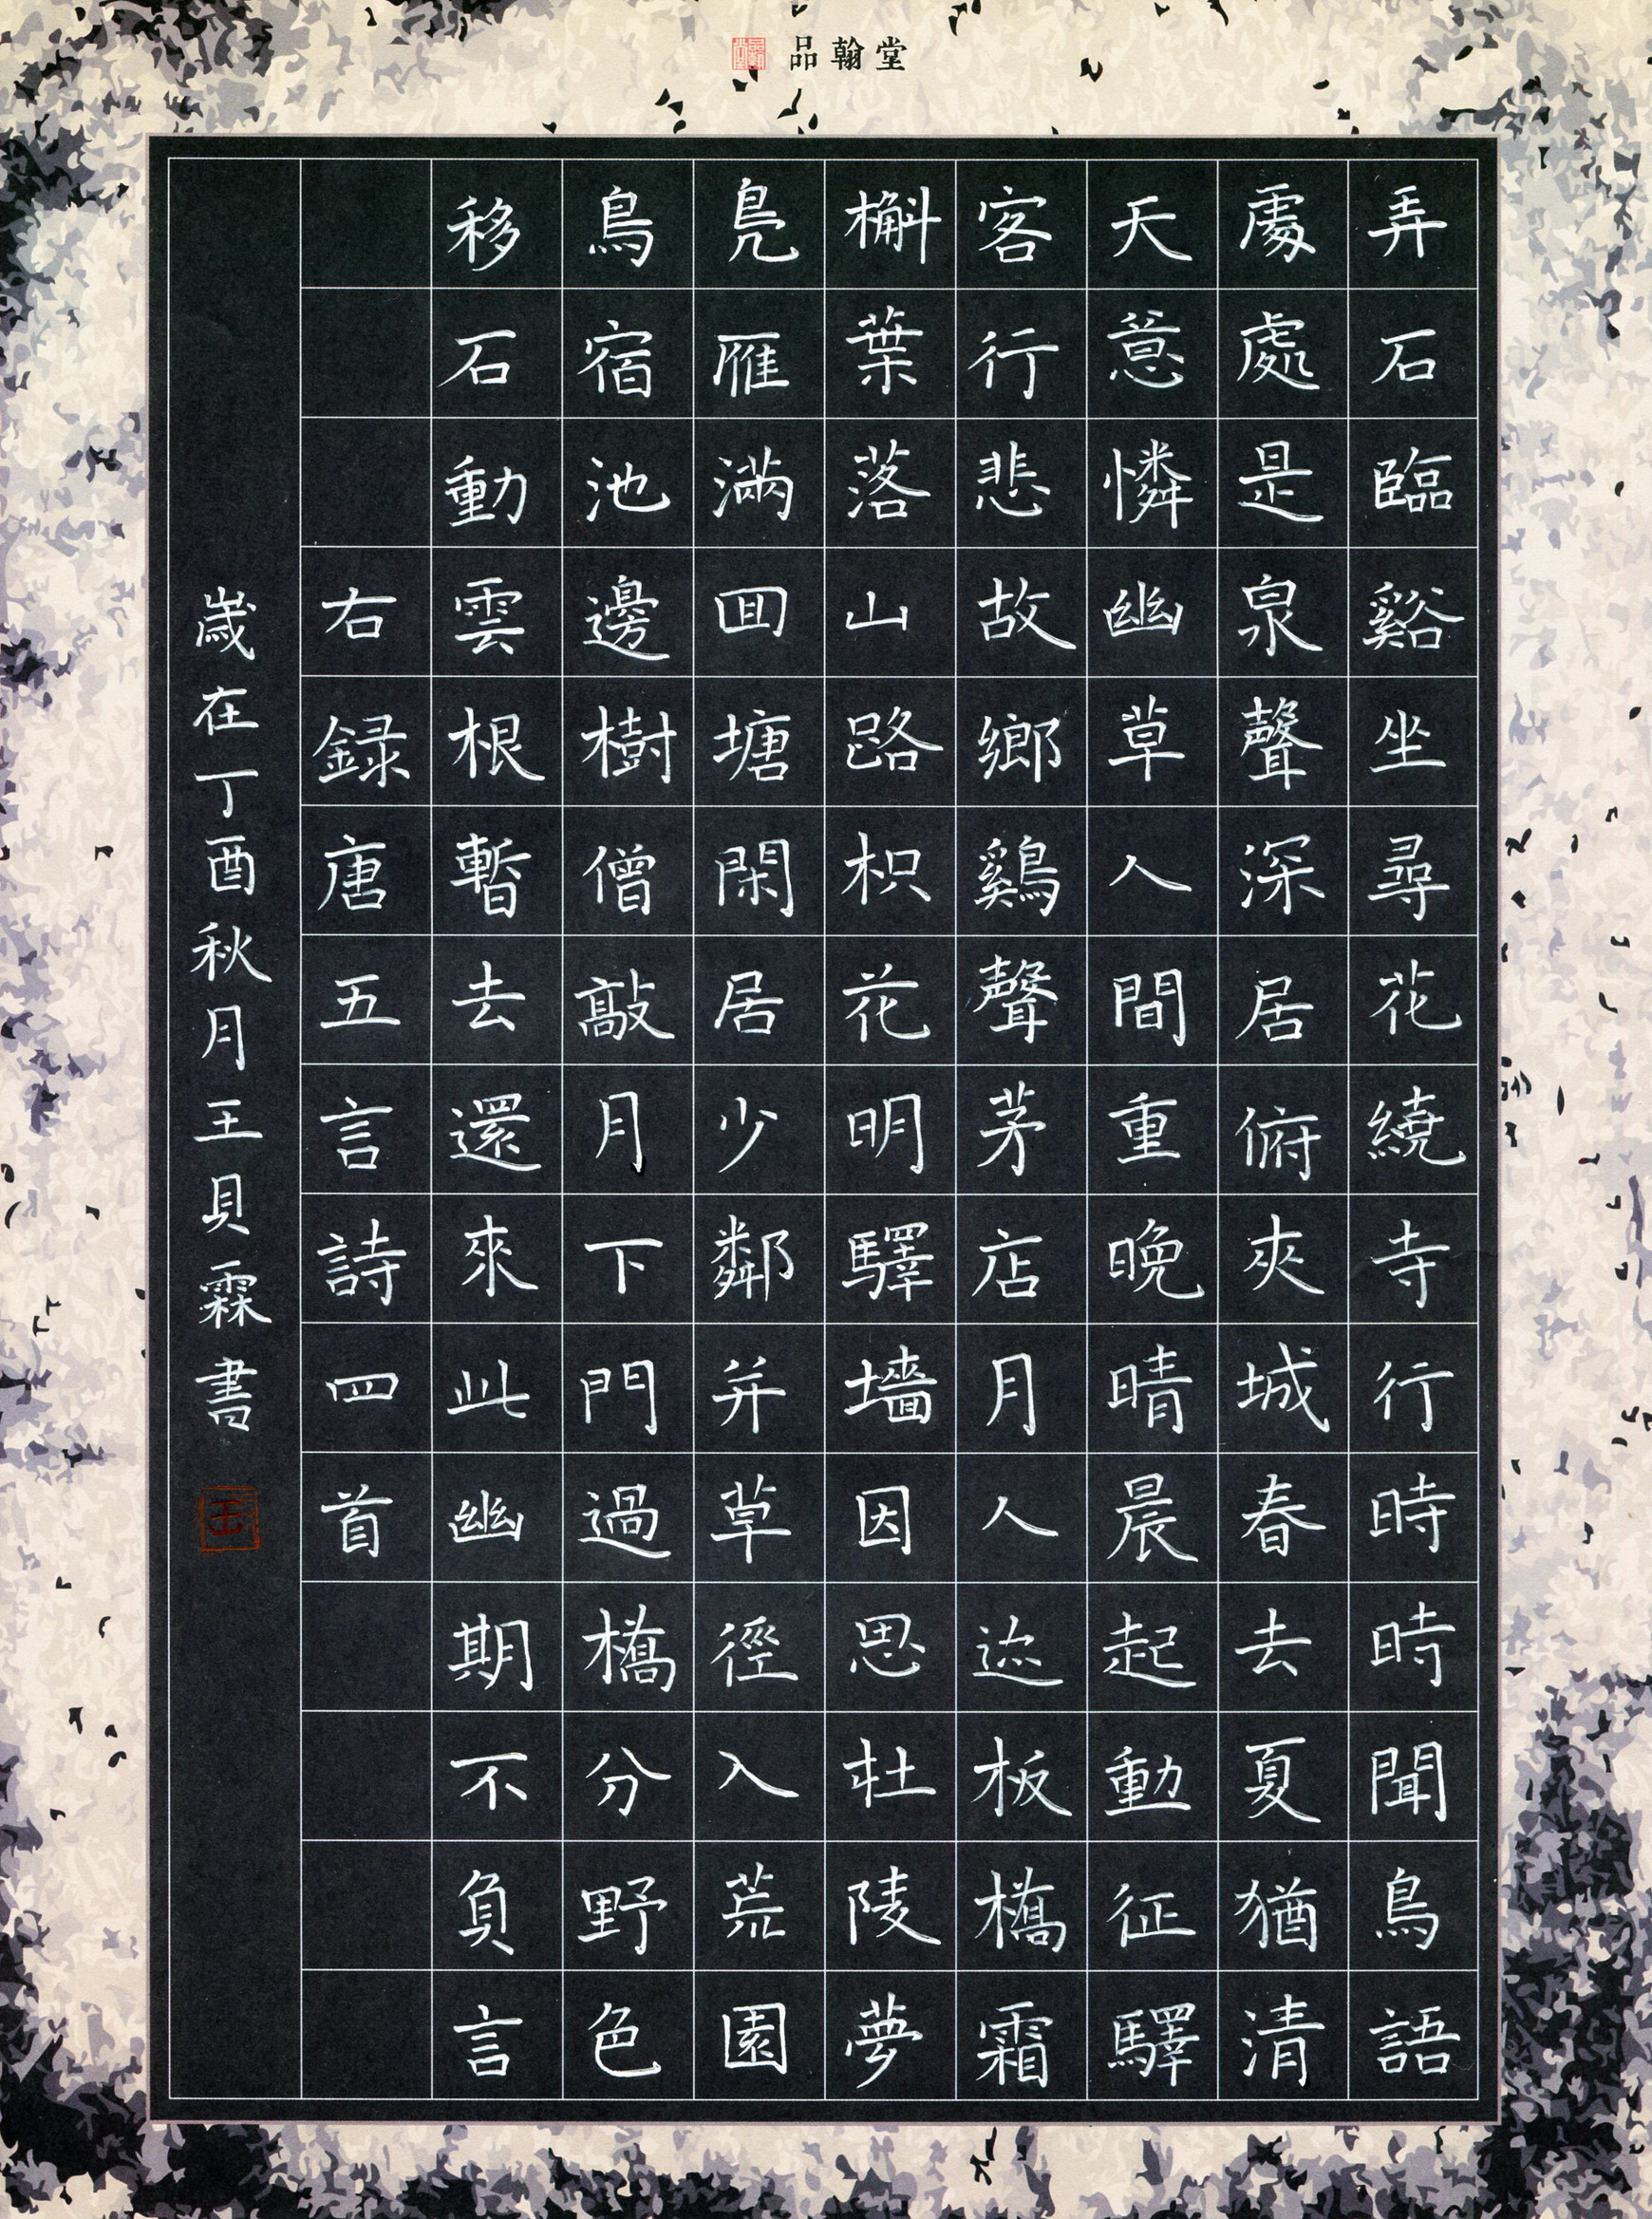 品翰堂
弄石臨谿坐尋花繞寺行時時聞鳥語
處處是泉聲深居俯夾城春去夏猶清
天意憐幽草人間重晚晴晨起動征驛
客行悲故鄉鷄聲茅店月人迹板橋霜
槲葉落山路枳花明驛墻因思杜陵夢
鳧雁滿回塘閑居少鄰并草徑入荒園
鳥宿池邊樹僧敲月下門過橋分野色
移石動雲根暫去還來此幽期不負言
右録唐五言詩四首
歲在丁酉秋月王貝霖書
王